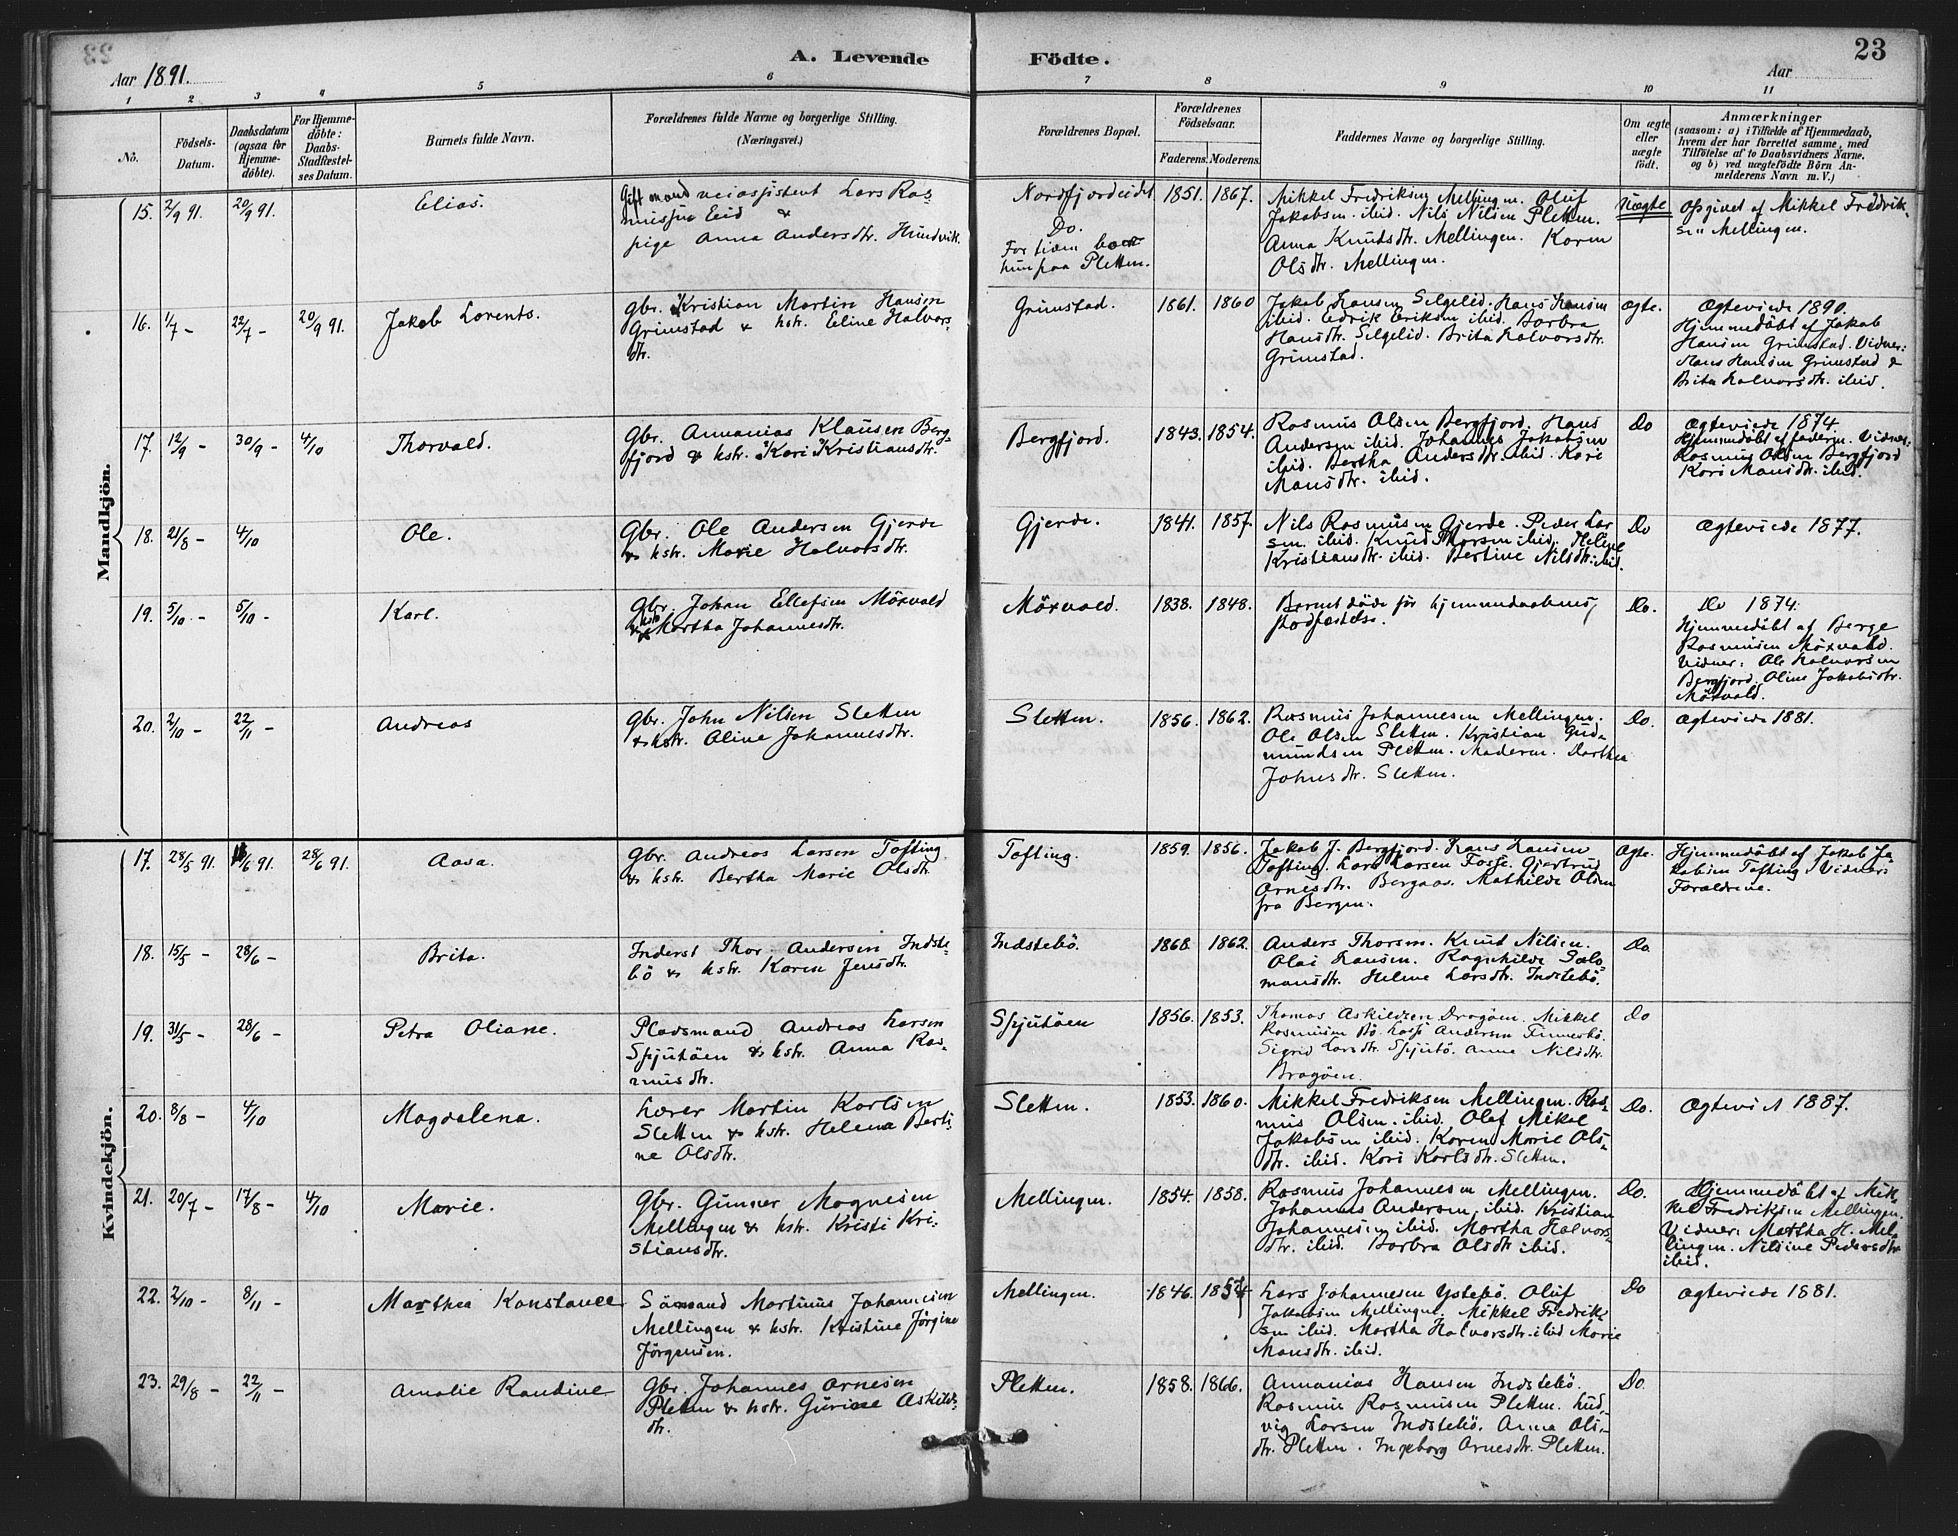 A. Levende Födte. 23
Aar 1891. Aar
1 2 3 4 5 6 7 8 9 10 11
No.
Födsels-
Datum.
Daabsdatum
(ogsaa for
Hjemme-
döbte).
For Hjemme-
döbte:
Daabs-
Stadfæstel-
ses Datum.
Barnets fulde Navn.
Forældrenes fulde Navne og borgerlige Stilling.
(Næringsvei.)
Forældrenes Bopæl.
Forældrenes
Födselsaar.
Faderens. Moderens.
Faddernes Navne og borgerlige Stilling.
Om ægte
eller
uægte
födt.
Anmærkninger
(saasom: a) i Tilfælde af Hjemmedaab,
hvem der har forrettet samme, med
Tilföielse af to Daabsvidners Navne,
og b) ved uægtefödte Börn An-
melderens Navn m. V.)
Mandkjön.
15. 2/9 91. 20/9 91. Elias.
Gift mand veiassistent Lars Ras-
mussen Eid &
pige Anna Andersdtr. Hundvik.
Nordfjordeidet
Do.
For tiden
hun paa Pletten.
1851. 1867.
Mikkel Fredriksen Mellingen. Oluf
Jakobsen ibid. Nils Nilsen Pletten.
Anna Knudsdtr. Mellingen. Karen
Olsdtr. Mellingen.
Uægte
Opgivet af Mikkel Fredrik-
sen Mellingen.
16. 1/7 - 22/7 - 20/9 91. Jakob Lorents.
Gbr. Kristian Martin Hansen
Grimstad & hstr. Eline Halvors-
dtr.
Grimstad. 1861. 1860
Jakob Hansen Selgelid. Hans Hansen
ibid. Edrik Eriksen ibid. Barbra
Hansdtr. Selgelid. Brita Halvorsdtr.
Grimstad.
Ægte.
Ægteviede 1890.
Hjemmedöbt af Jakob
Hansen Grimstad. Vidner:
Hans Hansen Grimstad &
Brita Halvorsdtr. ibid.
17. 12/9 - 30/9 - 4/10 Thorvald.
Gbr. Annanias Klausen Berg-
fjord & hstr. Kari Kristiansdtr.
Bergfjord. 1843. 1854.
Rasmus Olsen Bergfjord. Hans
Andersen ibid. Johannes Jakobsen
ibid. Bertha Andersdtr. ibid. Kari
Mansdtr. ibid.
Do
Ægteviede 1874.
Hjemmedöbt af faderen. Vidner:
Rasmus Olsen Bergfjord
Kari Mansdtr. ibid.
18. 21/8 - 4/10 Ole.
Gbr. Ole Andersen Gjerde
& hstr. Marie Halvorsdtr.
Gjerde. 1841. 1857.
Nils Rasmusen Gjerde. Peder Lar-
sen ibid. Knud Thorsen ibid. Heline
Kristiansdtr. ibid. Bertine Nilsdtr. ibid.
Do
Ægteviede 1877.
19. 5/10 - 5/10 - Karl.
Gbr. Johan Ellefsen Mörvald
& hstr Martha Johannesdtr.
Mörvald. 1838. 1848.
Barnet döde för hjemmedaabens
stadfæstelse.
Do.
Do 1874.
Hjemmedöbt af Berge
Rasmusen Mörvald.
Vidner: Ole Halvorsen
Bergfjord. Oline Jakobsdtr.
Mörvald.
20. 2/10 - 22/11 - Andreas
Gbr. John Nilsen Sletten
& hstr. Oline Johannesdtr.
Sletten. 1856. 1862.
Rasmus Johannesen Mellingen.
Ole Olsen Sletten. Kristian Gud-
mundsen Pletten. Moderen. Dorthea
Johnsdtr. Sletten.
Do.
Ægteviede 1881.
Kvindekjön.
17. 28/5 91. /6 91. 28/6 91. Aasa.
Gbr. Andreas Larsen Tofting
& hstr. Bertha Marie Olsdtr
Tofting. 1859. 1856.
Jakob J. Bergfjord. Hans Hansen
Tofting. Lars Larsen Fosse. Gjertrud
Arnesdtr. Bergaas. Mathilde Olsen
fra Bergen.
Ægte.
Hjemmedöbt af Jakob Ja-
kobsen Tofting. Vidner:
Forældrene.
18. 15/5 - 28/6 - Brita.
Inderst Thor Andersen Indste-
bö & hstr. Karen Jensdtr.
Indstebö. 1868. 1862.
Anders Thorsen. Knud Nilsen.
Olai Hansen. Ragnhilde Salo-
monsdtr. Heline Larsdtr. Indstebö.
Do.
19. 31/5 - 28/6 - Petra Oliane.
Pladsmand Andreas Larsen
Spjutöen & hstr. Anna Ras-
musdtr.
Spjutöen 1856. 1853.
Thomas Askildsen Dragöen. Mikkel
Rasmusen Bö. Lasse Andersen Tinnesbö.
Sigrid Larsdtr. Spjutö. Anne Nilsdtr.
Dragöen.
Do
20. 8/8 - 4/10 Magdalena.
Lærer Martin Karlsen
Sletten & hstr. Helena Berti-
ne Olsdtr.
Sletten. 1853. 1860.
Mikkel Fredriksen Mellingen. Ras-
mus Olsen. ibid. Olaf Mikal
Jakobsen ibid. Karen Marie Ols-
dtr. ibid. Kari Karlsdtr. Sletten.
Do.
Ægteviet 1887.
21. 20/7 - 17/8 - 4/10 Marie.
Gbr. Gunner Magnesen
Mellingen & hstr. Kristi Kri-
stiansdtr.
Mellingen. 1854. 1858.
Rasmus Johannesen Mellingen.
Johannes Andersen ibid. Kristian
Johannesen ibid. Martha Halvors-
dtr. ibid. Barbra Olsdtr ibid.
Do.
Hjemmedöbt af Mik-
kel Fredriksen Mellingen.
Vidner: Martha H. Mel-
lingen. Nilsine Pedersdtr
ibid.
22. 2/10 - 8/11 - Marthea Konstance
Sömand Martinus Johannesen
Mellingen & hstr. Kristine Jörgine
Jörgensen.
Mellingen. 1846. 1857
Lars Johannesen Ystebö. Oluf
Jakobsen Mellingen. Mikkel Fredrik-
sen ibid. Martha Halvorsdtr. ibid Marie
Mansdtr. ibid.
Do
Ægteviede 1881.
23. 29/8 - 22/11 - Amalie Randine
Gbr. Johannes Arnesen
Pletten & hstr. Gurine Askilds-
dtr.
Pletten. 1858. 1866.
Annanias Hansen Indstebö.
Rasmus Rasmusen Pletten. Lud-
vig Larsen Indstebö. Anna Ols-
dtr. Pletten. Ingeborg Arnesdtr. Pletten.
Do.